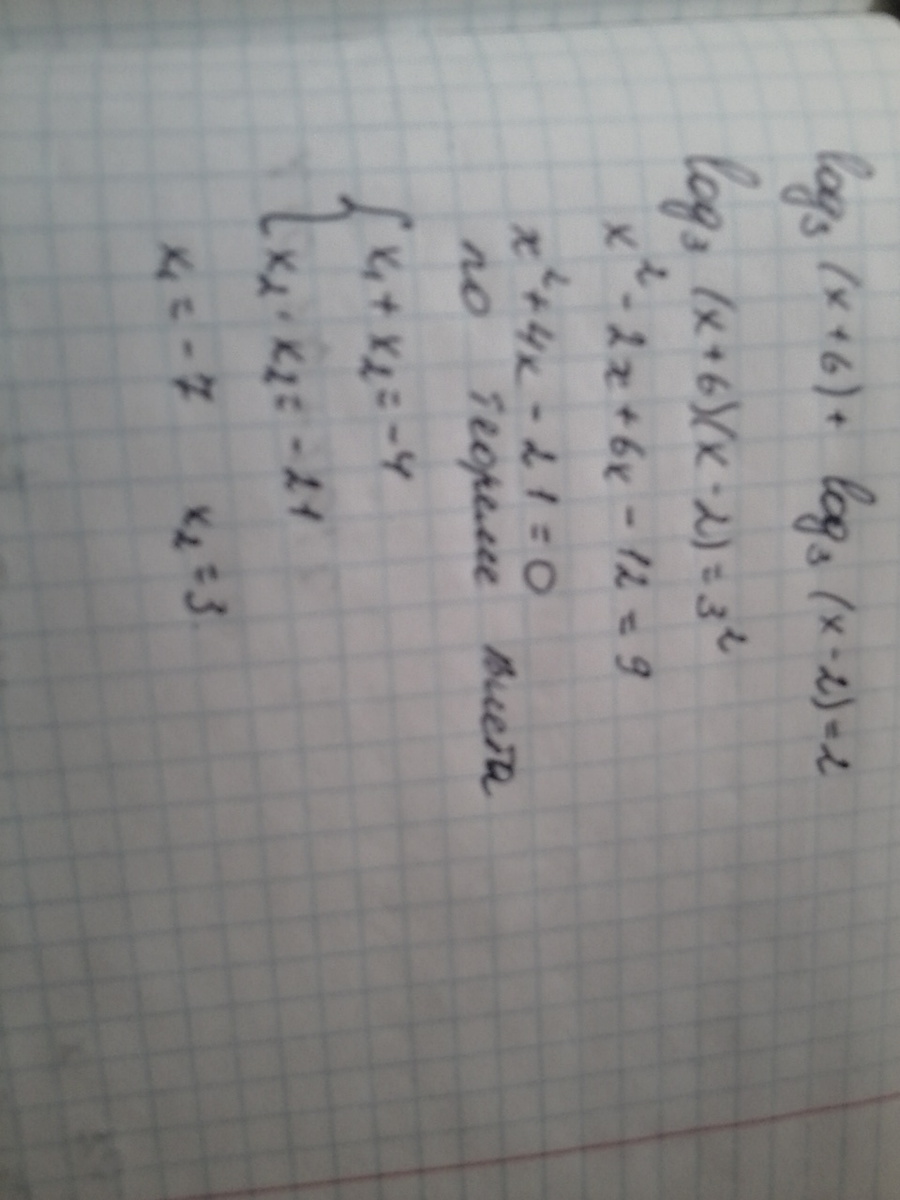 log₃ (x+6)+ log₃ (x-2)=2
log₃ (x+6)(x-2)=3²
x²-2x+6x-12=9
x²+4x-21=0
по теореме виета
{ x₁+x₂=-4
{ x₁·x₂=-21
x₁=-7 x₂=3